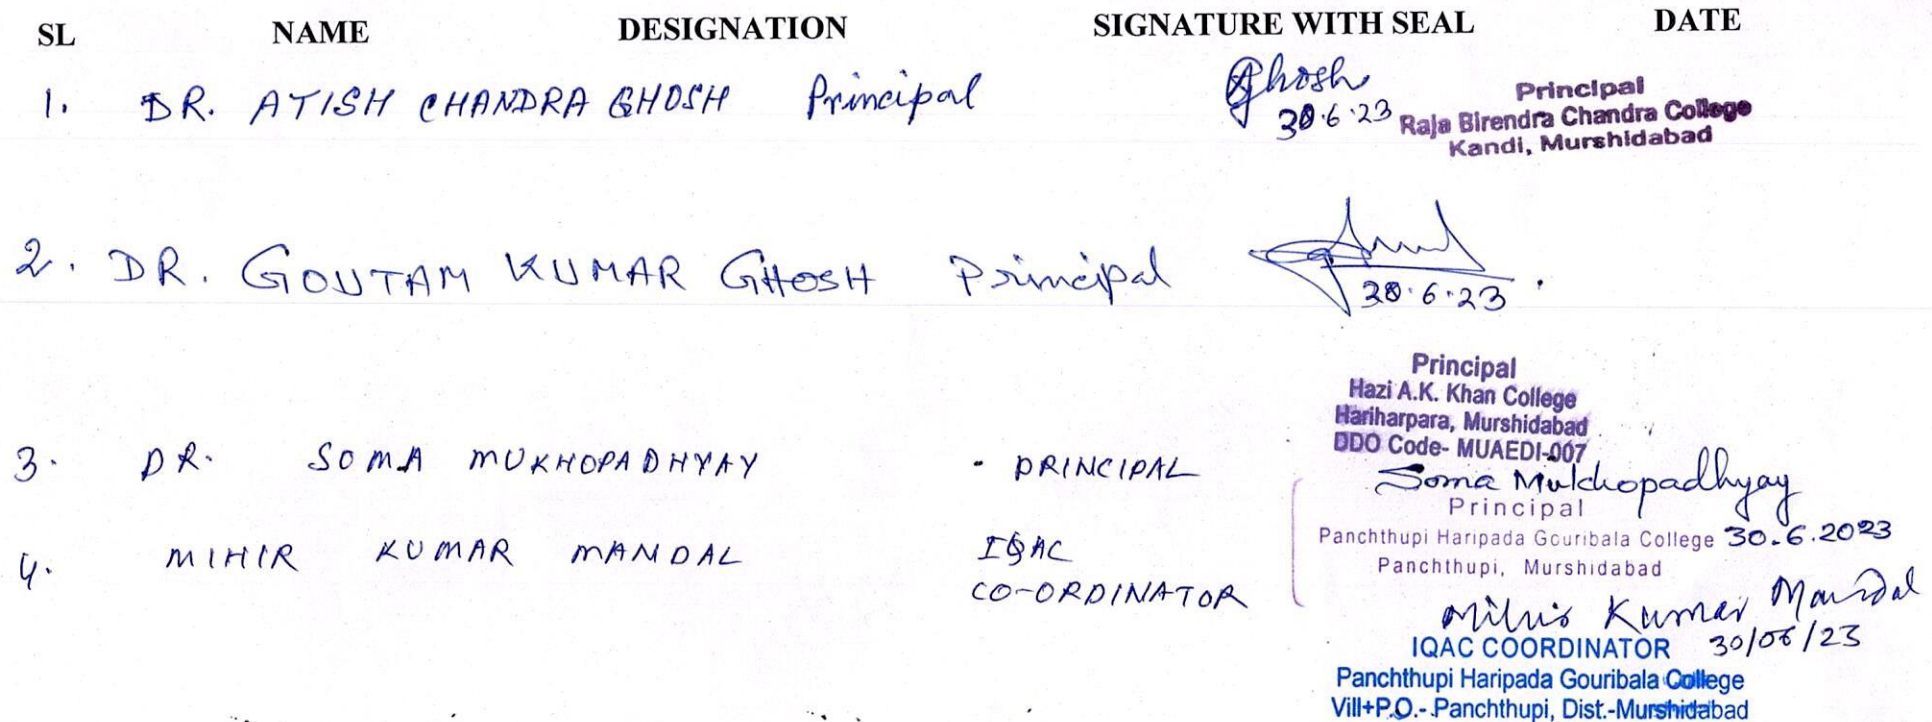 SL NAME DESIGNATION SIGNATURE WITH SEAL DATE
1. DR. ATISH CHANDRA GHOSH Principal Ghosh
30.6.23
Principal
Raja Birendra Chandra College
Kandi, Murshidabad
2. DR. GOUTAM KUMAR GHOSH Principal
30.6.23
Principal
Hazi A.K. Khan College
Hariharpara, Murshidabad
DDO Code- MUAEDI-007
3. DR. SOMA MUKHOPADHYAY - PRINCIPAL Soma Mukhopadhyay
Principal
Panchthupi Haripada Gouribala College 30.6.2023
Panchthupi, Murshidabad
4. MIHIR KUMAR MANDAL IQAC
CO-ORDINATOR
Mihir Kumar Mandal
IQAC COORDINATOR 30/06/23
Panchthupi Haripada Gouribala College
Vill+P.O.- Panchthupi, Dist.-Murshidabad